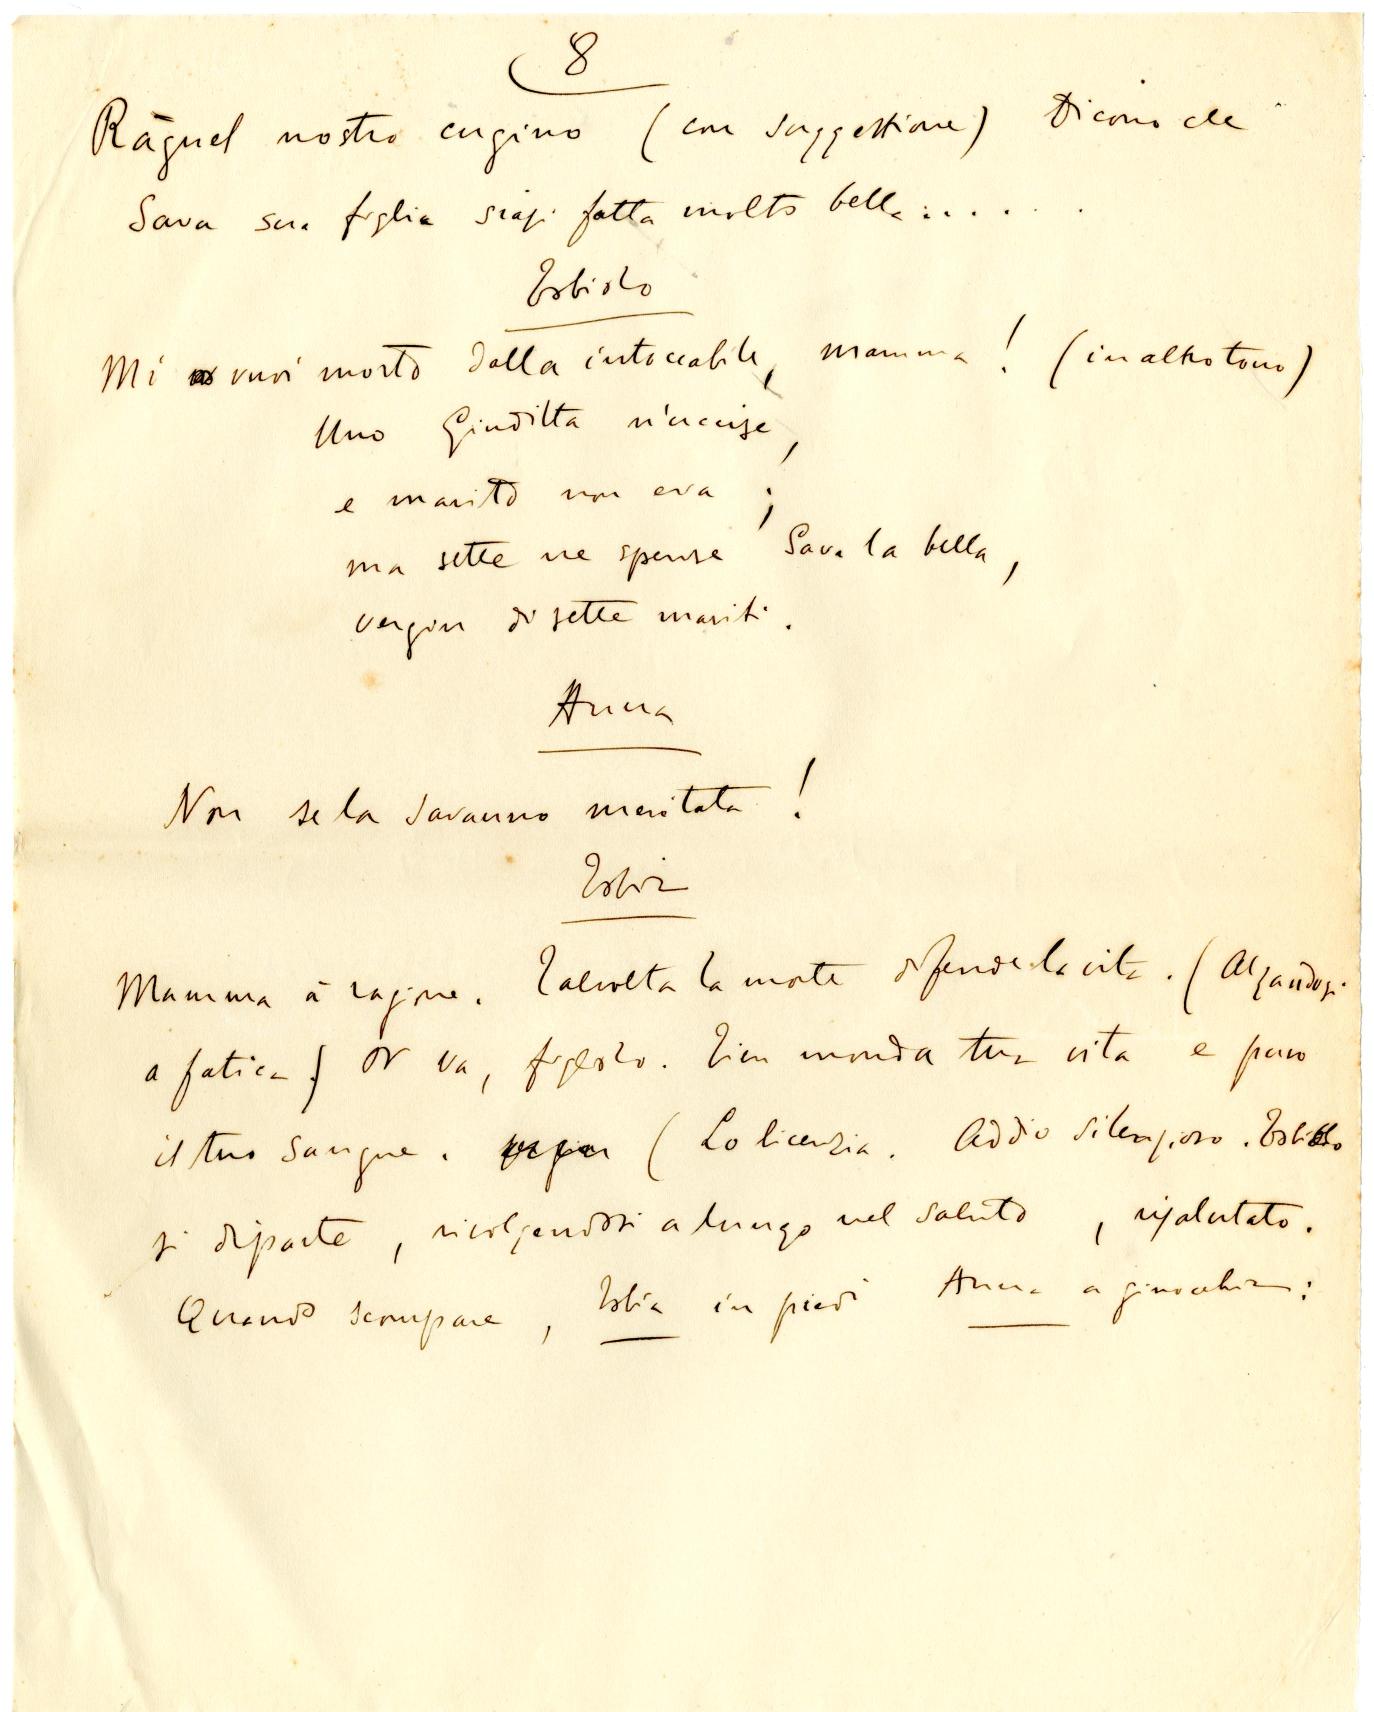 8
Ràguel nostro cugino (con suggestione) Dicono che
Sara sua figlia siasi fatta molto bella......
Tobiolo
Mi vuoi morto dalla intoccabile, mamma! (in altro tono)
Uno Giuditta n'uccise,
e marito non era;
ma sette ne spense Sara la bella,
vergin di sette mariti.
Anna
Non se la saranno meritata!
Tobia
Mamma à ragione. Talvolta la morte difende la vita. (Alzandosi
a fatica) Or va, figliolo. Tien monda tua vita e puro
il tuo sangue. (Lo licenzia. Addio silenzioso. Tobiolo
si diparte, rivolgendosi a lungo nel saluto, risalutato.
Quando scompare, Tobia in piedi Anna a ginocchio: